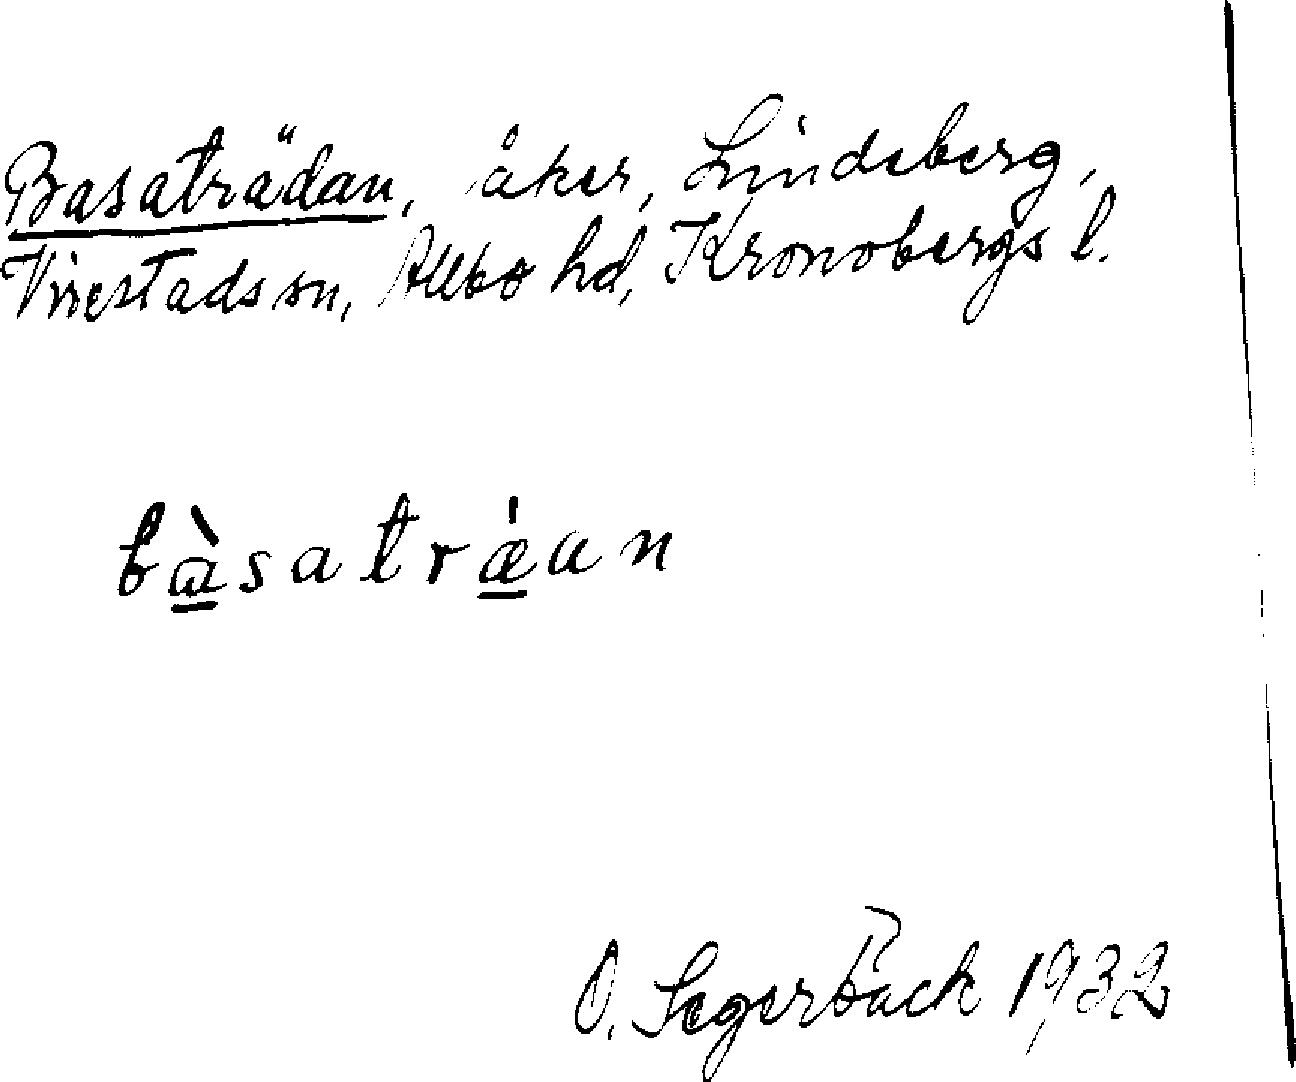 Basaträdan, åker, Lindeberg,
Virestads sn, Allbo hd, Kronobergs l.
bɑ̀satrǽan
O. Segerbäck 1932